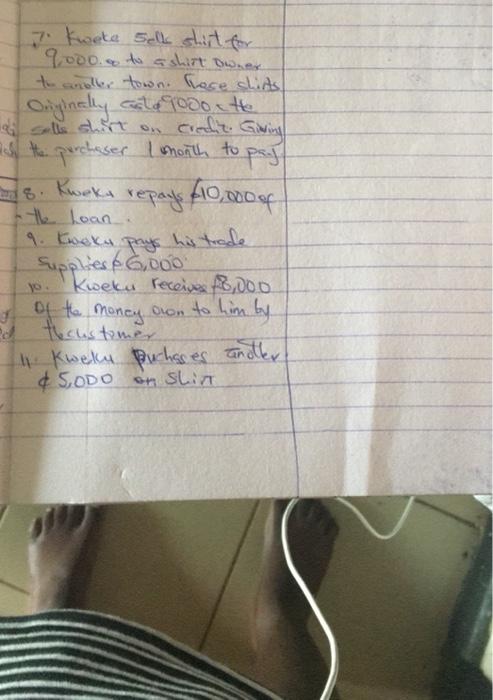 7. Kweku Sells shirt for
9,000.00 to a shirt owner
to another town. These shirts
Originally cost ¢9000 the
sells shirt on credit. Giving
the purchaser 1 month to pay
8. Kweku repays ¢10,000 of
the Loan.
9. Kweku pays his trade
Supplies ¢6,000
10. Kweku receives ¢8,000
Of the money own to him by
the customer
11. Kweku puchases another
¢5,000 on Shirt